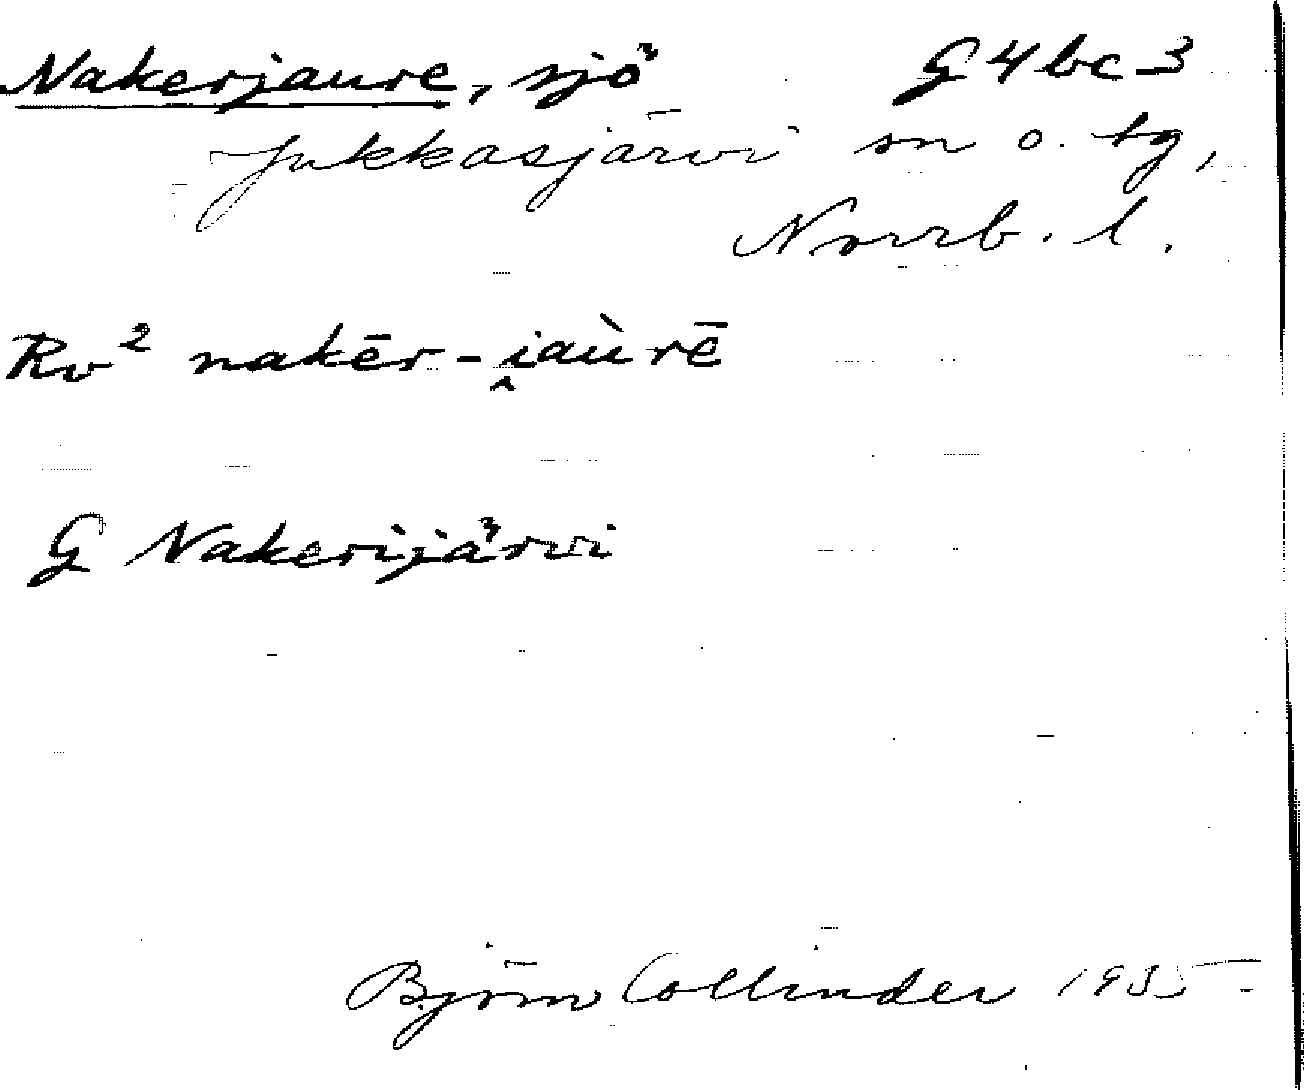 Nakerjaure, sjö G4bc3
Jukkasjärvi sn o. tg,
Norrb. l.
Rv² nakēr-i̭aùrē
G Nakerijärvi
Björn Collinder 1935